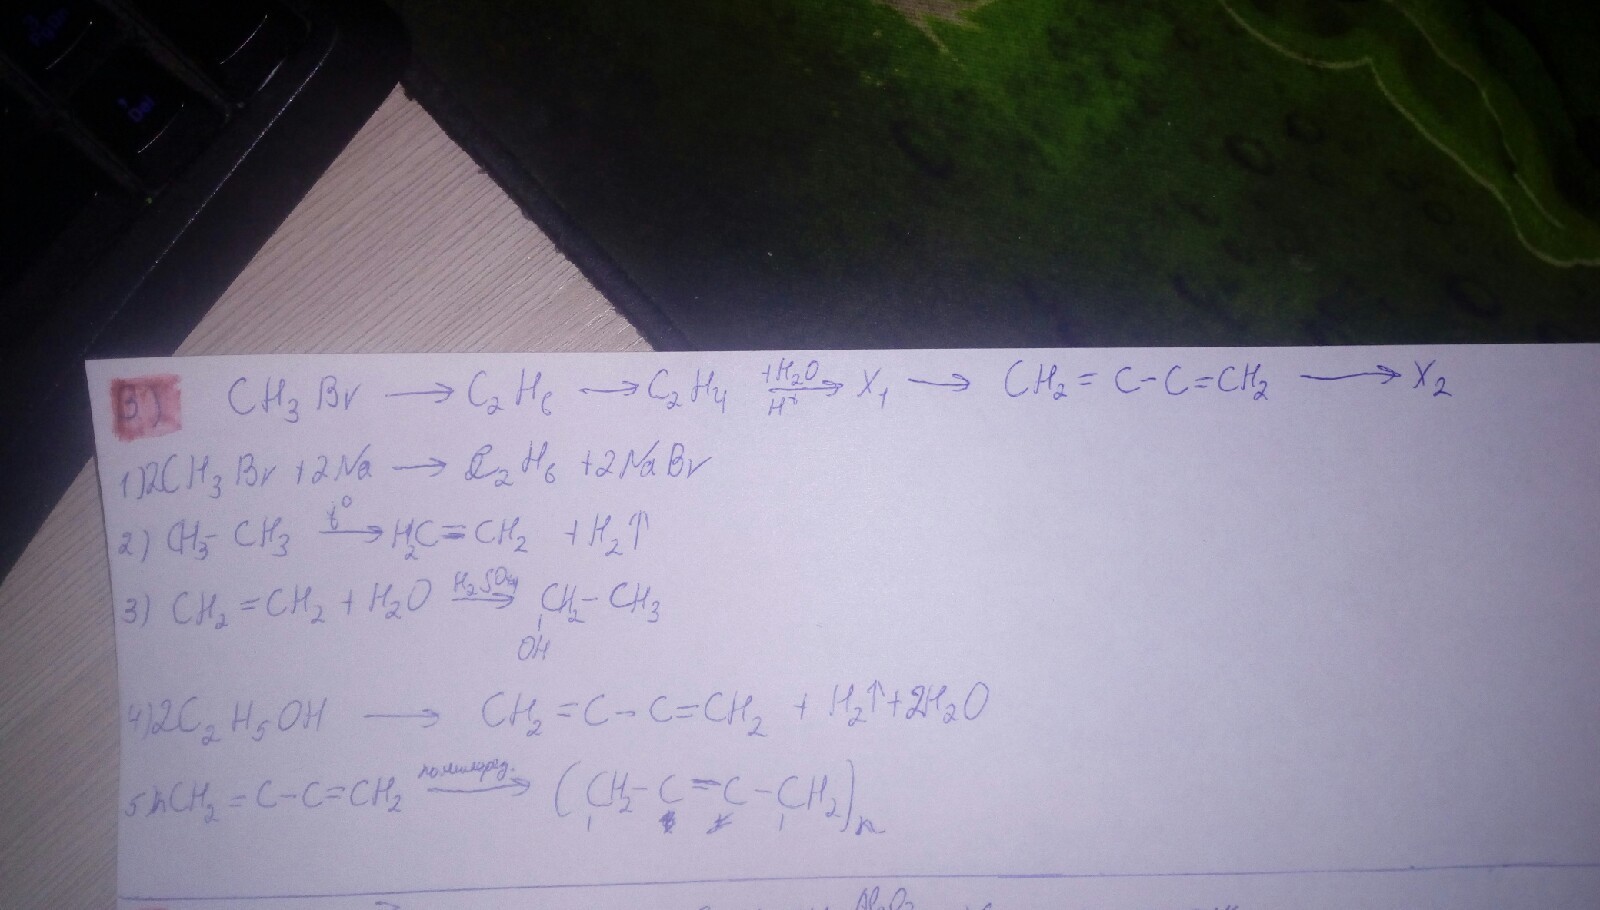 B) CH3Br → C2H6 → C2H4 +H2O → H+ X1 → CH2=C-C=CH2 → X2
1) 2CH3Br + 2Na → C2H6 + 2NaBr
2) CH3-CH3 t° → H2C=CH2 + H2↑
3) CH2=CH2 + H2O H2SO4 → CH2-CH3
OH
4) 2C2H5OH → CH2=C-C=CH2 + H2↑ + 2H2O
5) nCH2=C-C=CH2 полимериз. → (CH2-C=C-CH2)n
Al2O3